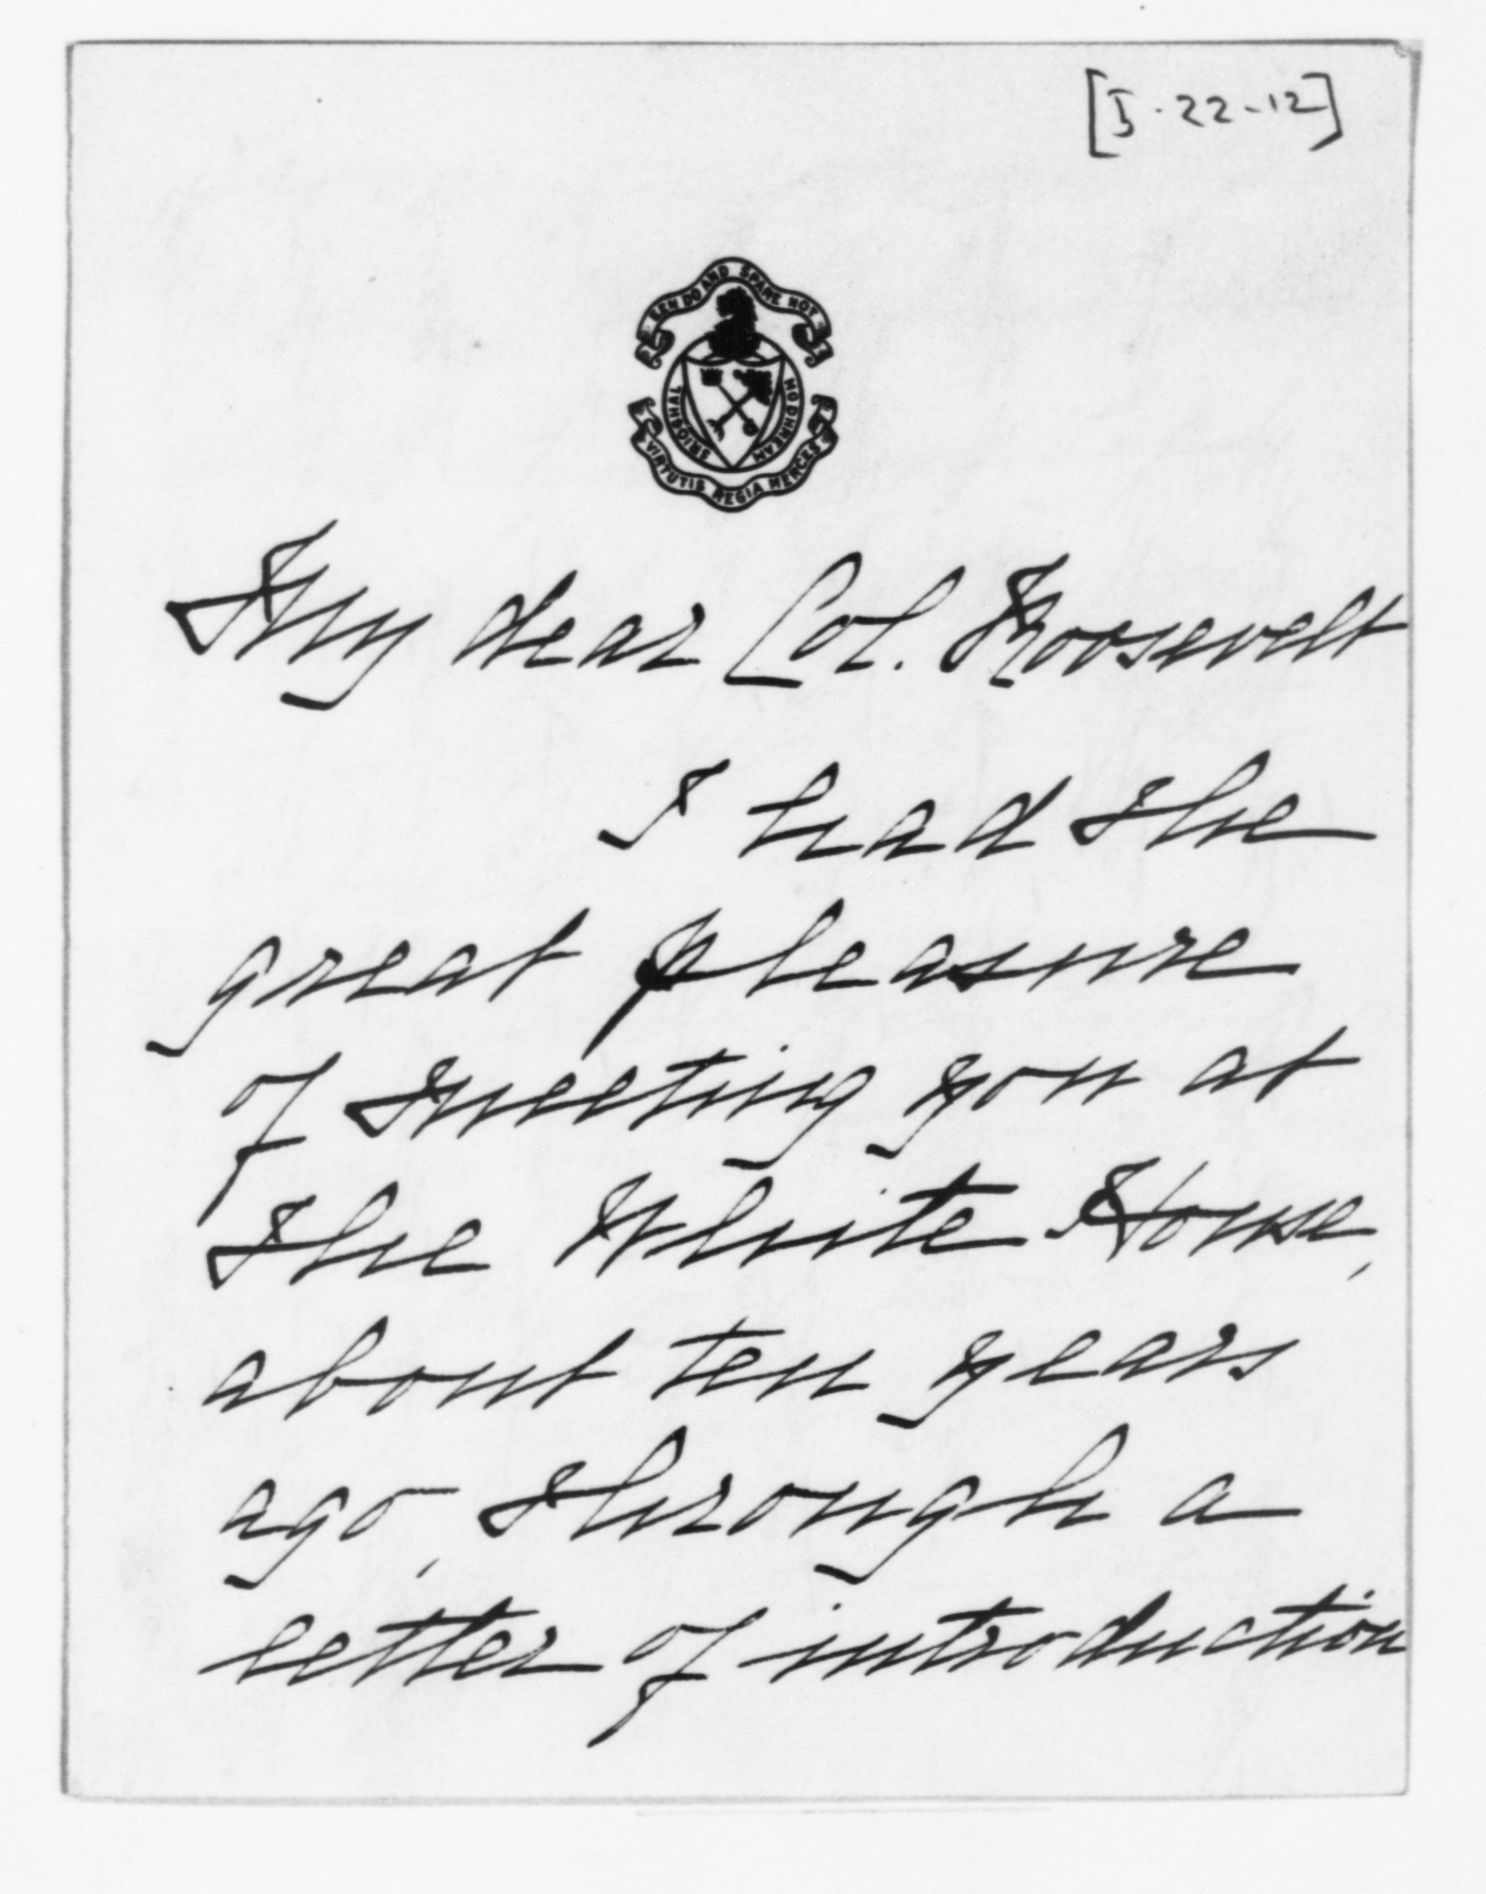 [5-22-12]
E'EN DO AND SPARE NOT
SRIOGHAL MO DHREAM
VIRTUTIS REGIA MERCES
My dear Col. Roosevelt
I had the
great pleasure
of meeting you at
the White House,
about ten years
ago, through a
letter of introduction